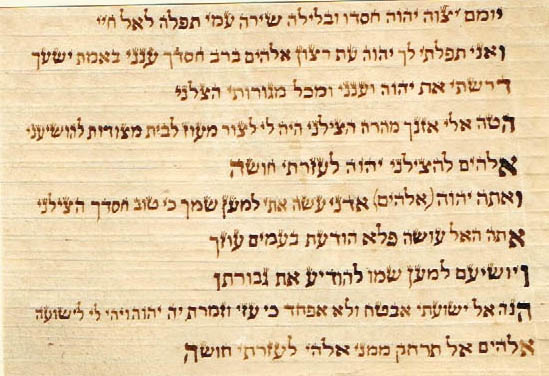 יומם יצוה יהוה חסדו ובלילה שירה עמי תפלה לאל חיי
ואני תפלתי לך יהוה עת רצון אלהים ברב חסדך ענני באמת ישעך
דרשתי את יהוה וענני ומכל מגורותי הצלני
הטה אלי אזנך מהרה הצילני היה לי לצור מעוז לבית מצודות להושיעני
אלהים להצילני יהוה לעזרתי חושה
ואתה יהוה (אלהים) אדני עשה אתי למען שמך כי טוב חסדך הצילני
אתה האל עושה פלא הודעת בעמים עוזך
ויושיעם למען שמו להודיע את גבורתו
הנה אל ישועתי אבטח ולא אפחד כי עזי וזמרת יה יהוה ויהי לי לישועה
אלהים אל תרחק ממני אלהי לעזרתי חושה